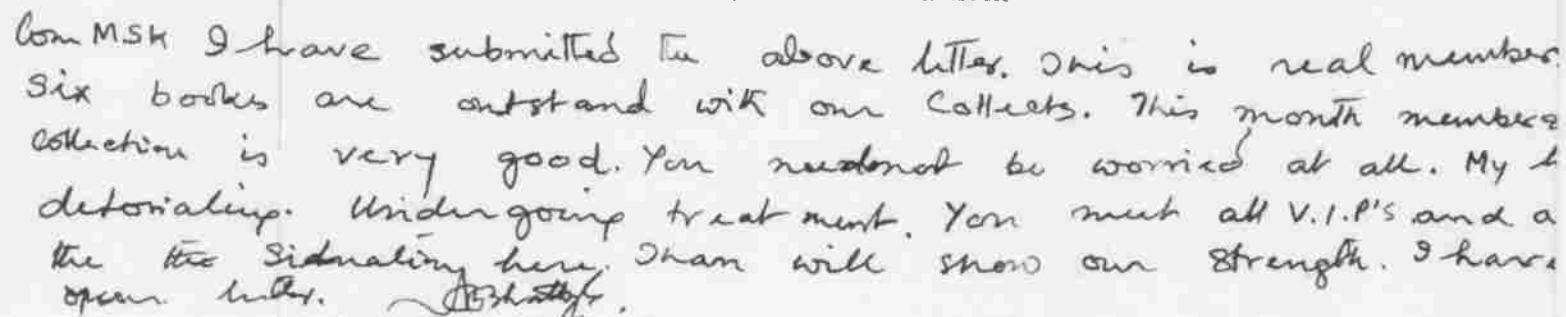 Com MSK I have submitted the above letter. This is real member.
Six books are outstand with our Collects. This month members
collection is very good. You neednot be worried at all. My
detoriating. Undergoing treatment. You meet all V.I.P's and a
the the here. Than will show our strength. I have
open letter.